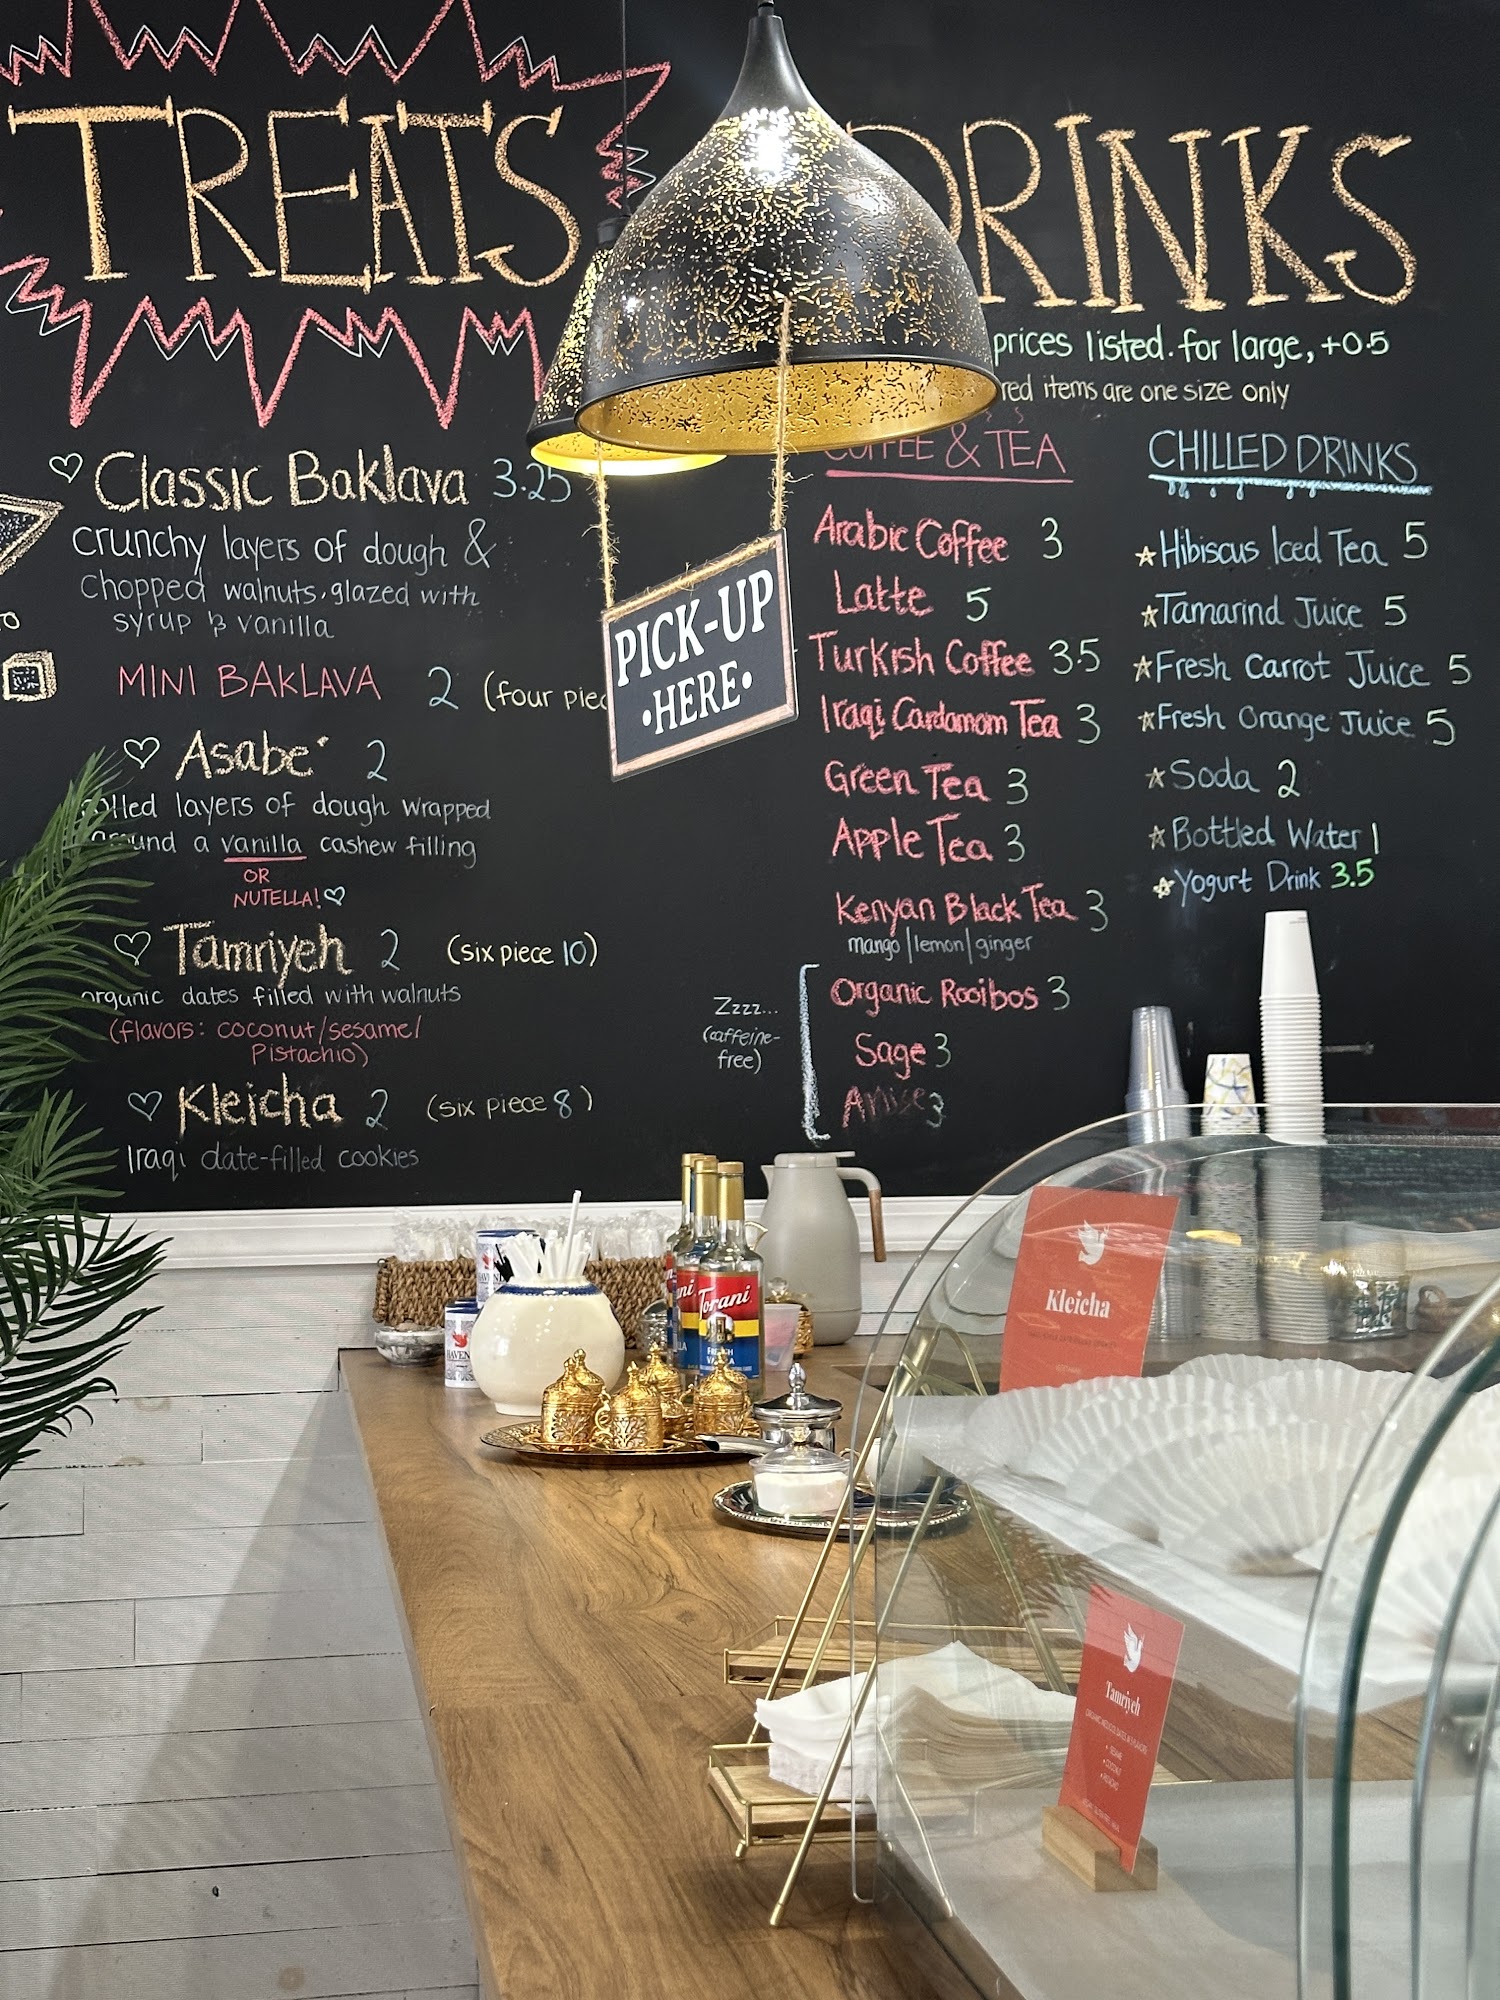 TREATS
♡ Classic Baklava 3.25
crunchy layers of dough &
chopped walnuts. glazed with
syrup & vanilla
MINI BAKLAVA 2 (four
♡ Asabe' 2
rolled layers of dough wrapped
around a vanilla cashew filling
OR
NUTELLA! ♡
♡ Tamriyeh 2 (six piece 10)
organic dates filled with walnuts
(flavors: coconut/sesame/
Pistachio)
♡ Kleicha 2 (six piece 8)
Iraqi date-filled cookies
PICK-UP
•HERE•
DRINKS
prices listed. for large, +0.5
red items are one size only
COFFEE & TEA
Arabic Coffee 3
Latte 5
Turkish Coffee 3.5
Iraqi Cardamom Tea 3
Green Tea 3
Apple Tea 3
Kenyan Black Tea 3
mango | lemon | ginger
Zzzz...
(caffeine-
free)
Organic Rooibos 3
Sage 3
Anise 3
CHILLED DRINKS
☆ Hibiscus Iced Tea 5
☆ Tamarind Juice 5
☆ Fresh Carrot Juice 5
☆ Fresh Orange Juice 5
☆ Soda 2
☆ Bottled Water 1
☆ Yogurt Drink 3.5
Torani
FRENCH
VANILLA
Kleicha
Tamriyeh
• SESAME
• COCONUT
• PISTACHIO